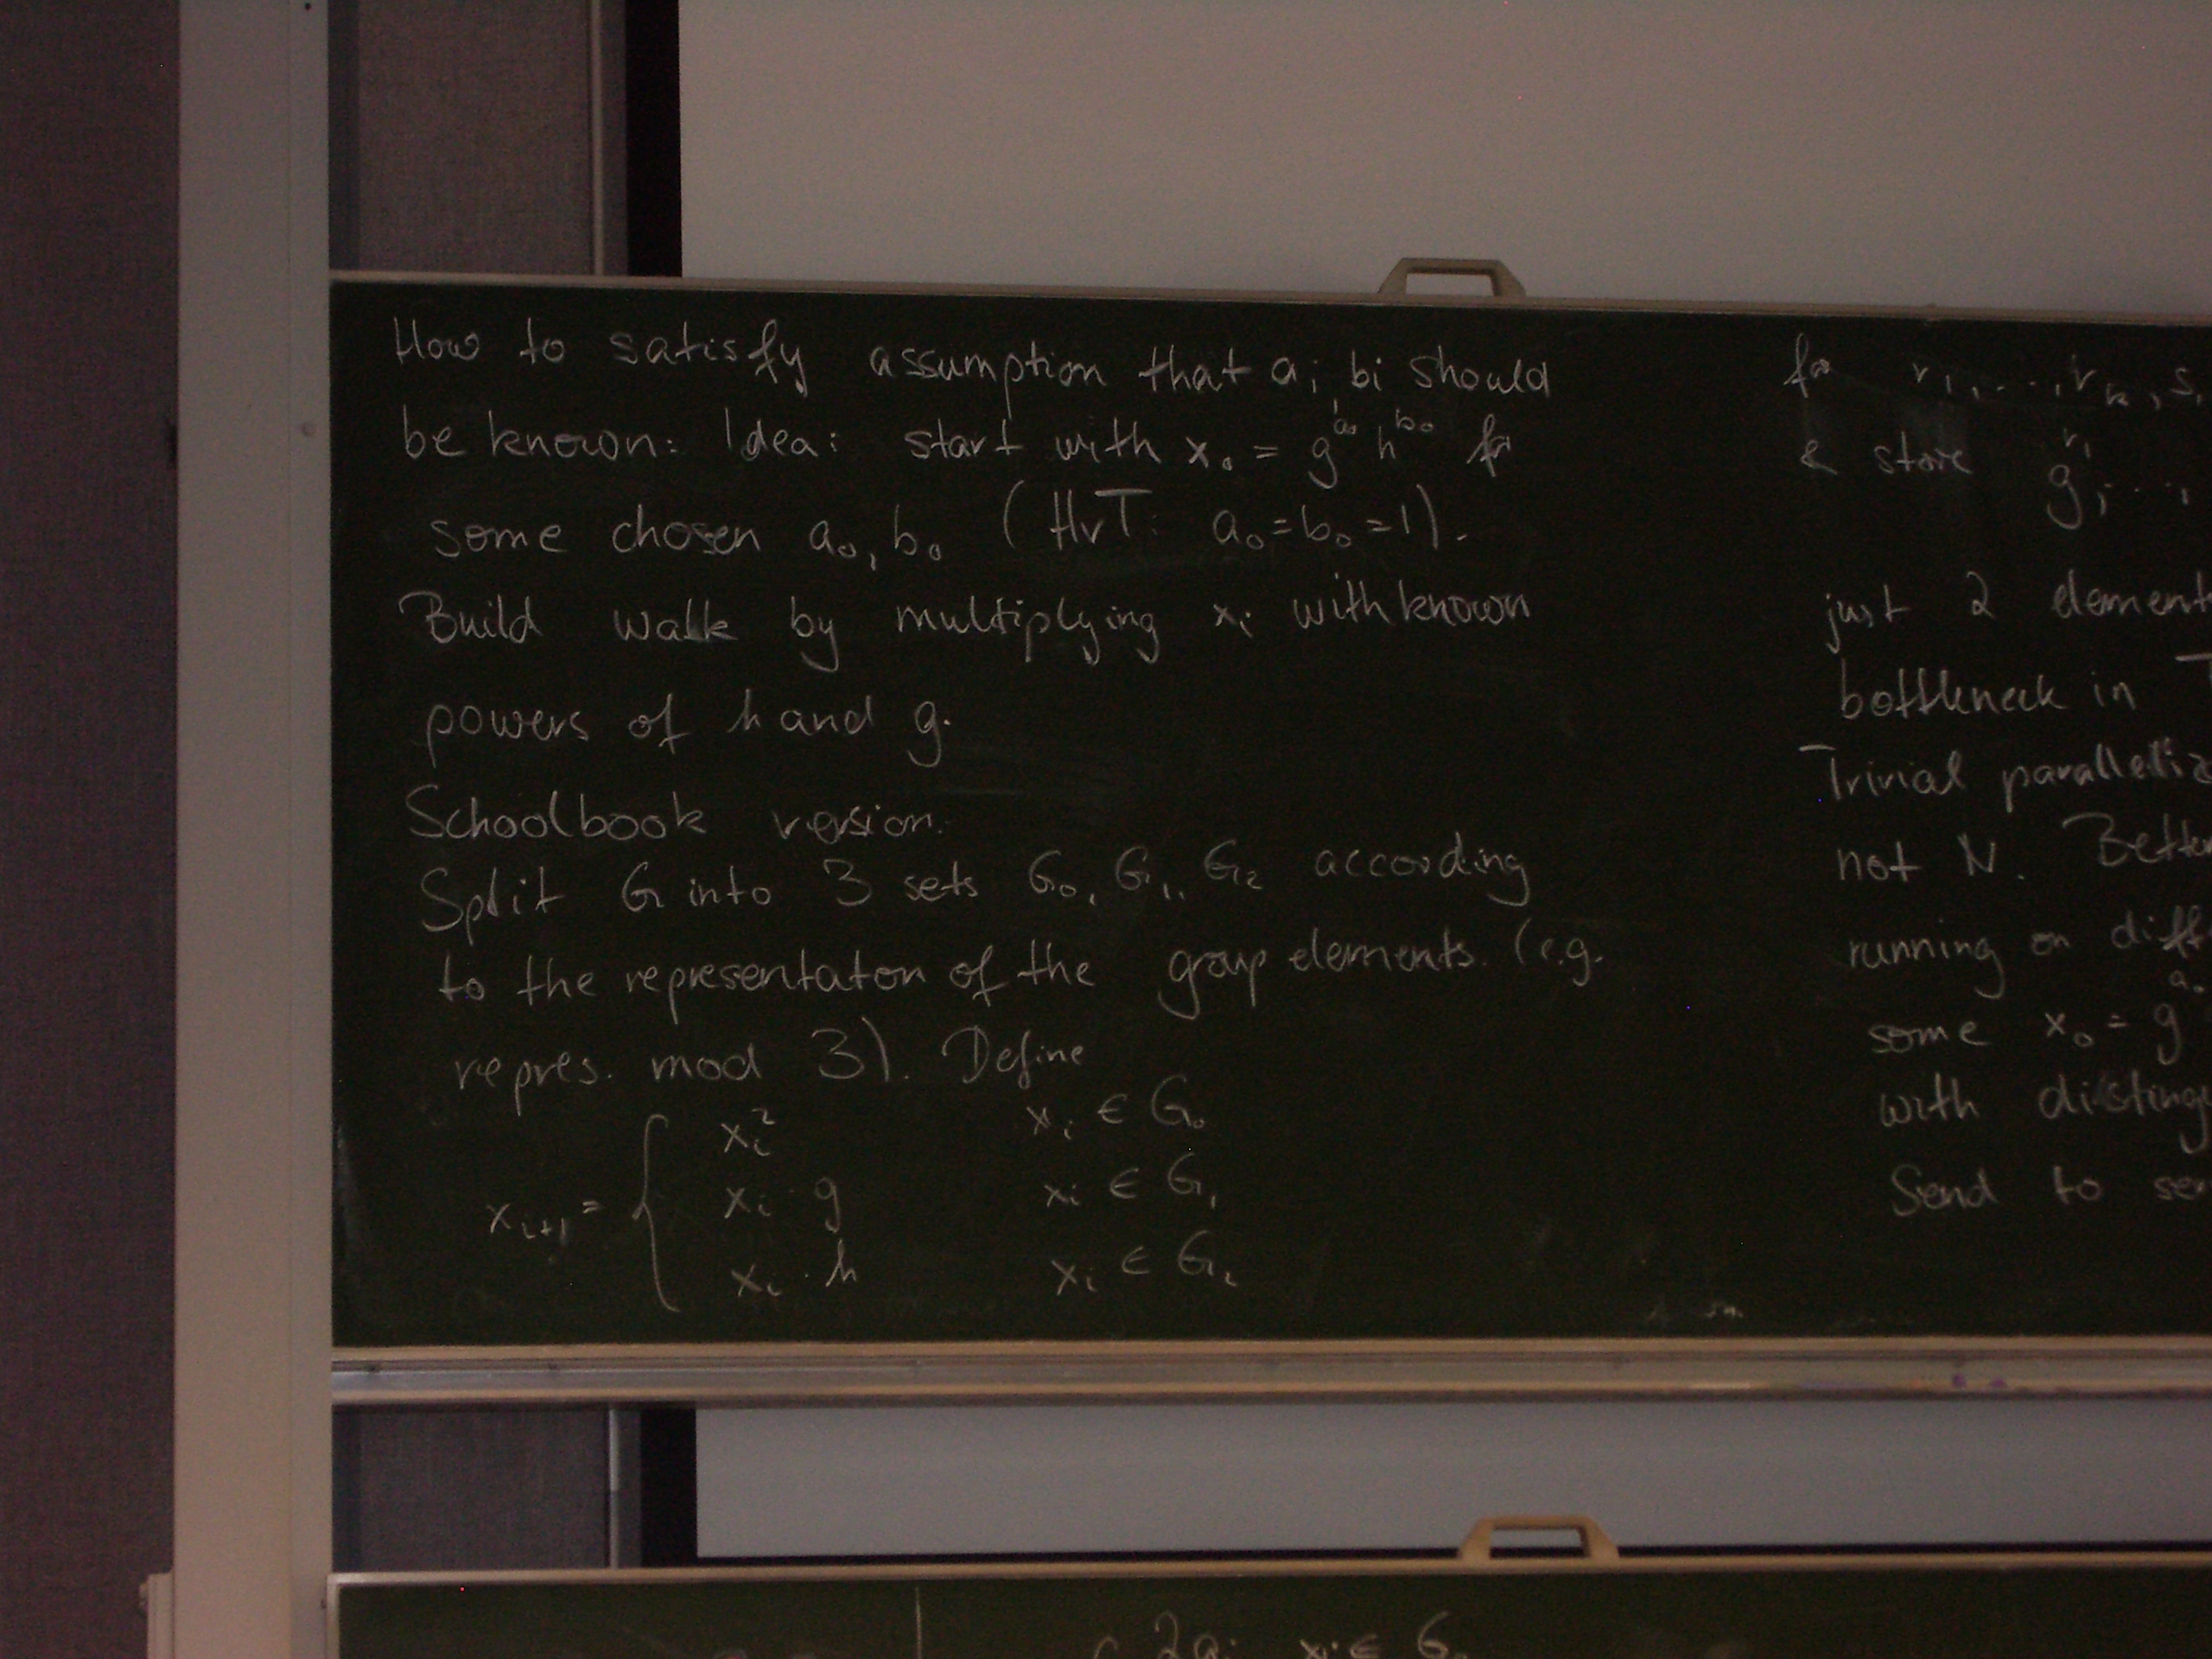 How to satisfy assumption that ai, bi should
be known: Idea: start with x₀ = g^a₀ h^b₀ for
some chosen a₀, b₀ (HvT: a₀=b₀=1).
Build walk by multiplying xᵢ with known
powers of h and g.
Schoolbook version.
Split G into 3 sets G₀, G₁, G₂ according
to the representaton of the group elements. (e.g.
repres. mod 3). Define
xᵢ₊₁ = { xᵢ² xᵢ ∈ G₀
xᵢ · g xᵢ ∈ G₁
xᵢ · h xᵢ ∈ G₂
for r₁, ..., rₖ, s₁
& store g^r₁, ...,
just 2 element
bottleneck in T
Trivial paralleliz
not N. Better
running on diff
some x₀ = g^a₀
with disting
Send to ser
2aᵢ xᵢ ∈ G